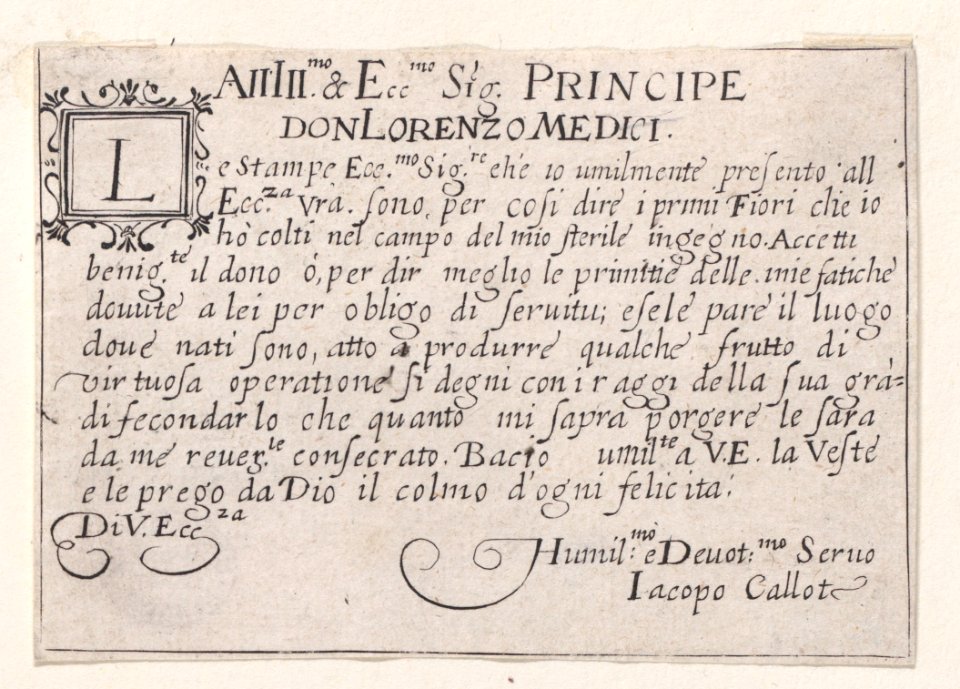 All Ill.mo & Ecc.mo Sig. PRINCIPE
DON LORENZO MEDICI.
Le Stampe Ecc.mo Sig.re ché io umilmente presento all
Ecc.za Vrà. sono, per cosi dire i primi Fiori che io
hò colti nel campo del mio sterile ingegno. Accetti
benig.te il dono ò, per dir meglio le primitie delle mie fatiche
douute a lei per obligo di seruitu; e se le pare il luogo
doue nati sono, atto a produrre qualche frutto di
virtuosa operatione si degni con i raggi della sua grà=
di fecondarlo che quanto mi sapra porgere le sara
da me reuer.te consecrato. Bacio umil.te a V.E. la Veste
e le prego da Dio il colmo d'ogni felicita.
Di V. Ecc.za
Humil.mo e Deuot.mo Seruo
Iacopo Callot